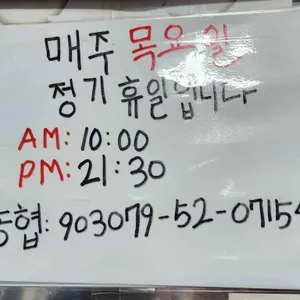 매주 목요일
정기 휴일입니다
AM: 10:00
PM: 21:30
농협: 903079-52-07154